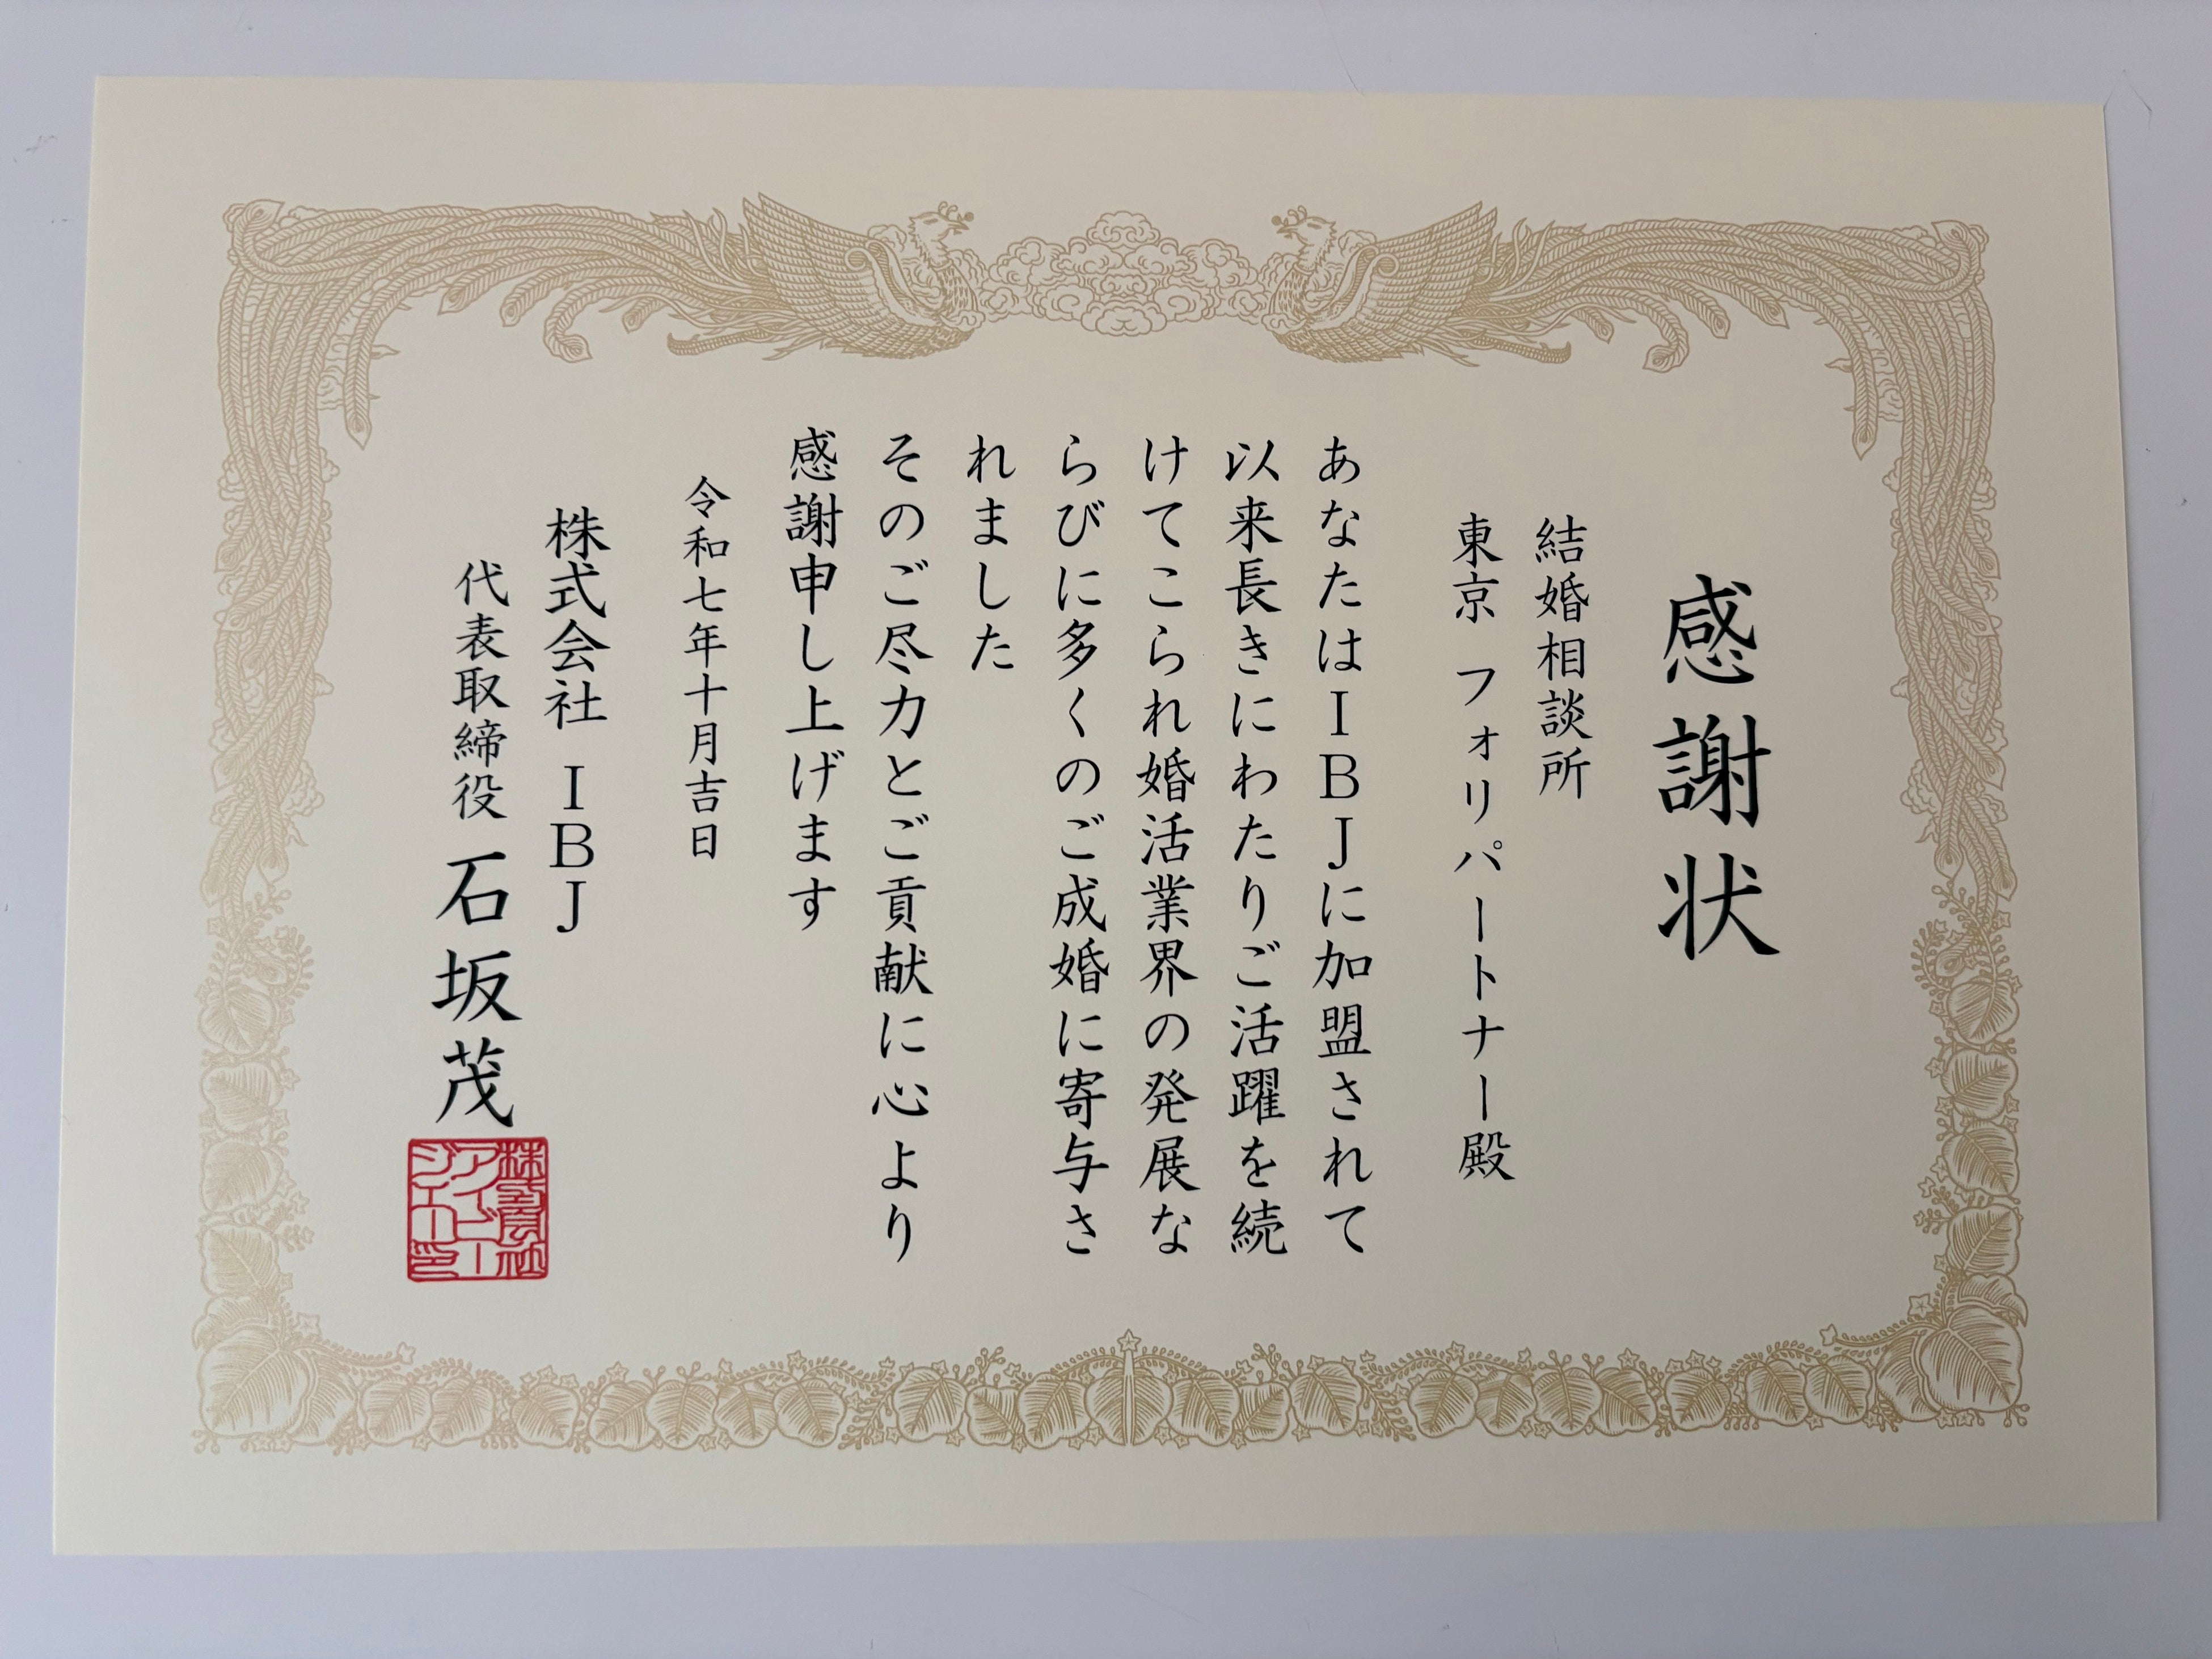 感謝状
結婚相談所
東京 フォリパートナー殿
あなたはIBJに加盟されて
以来長きにわたりご活躍を続
けてこられ婚活業界の発展な
らびに多くのご成婚に寄与さ
れました
そのご尽力とご貢献に心より
感謝申し上げます
令和七年十月吉日
株式会社 IBJ
代表取締役 石坂茂
株式会社
アイビー
ジェイ之印